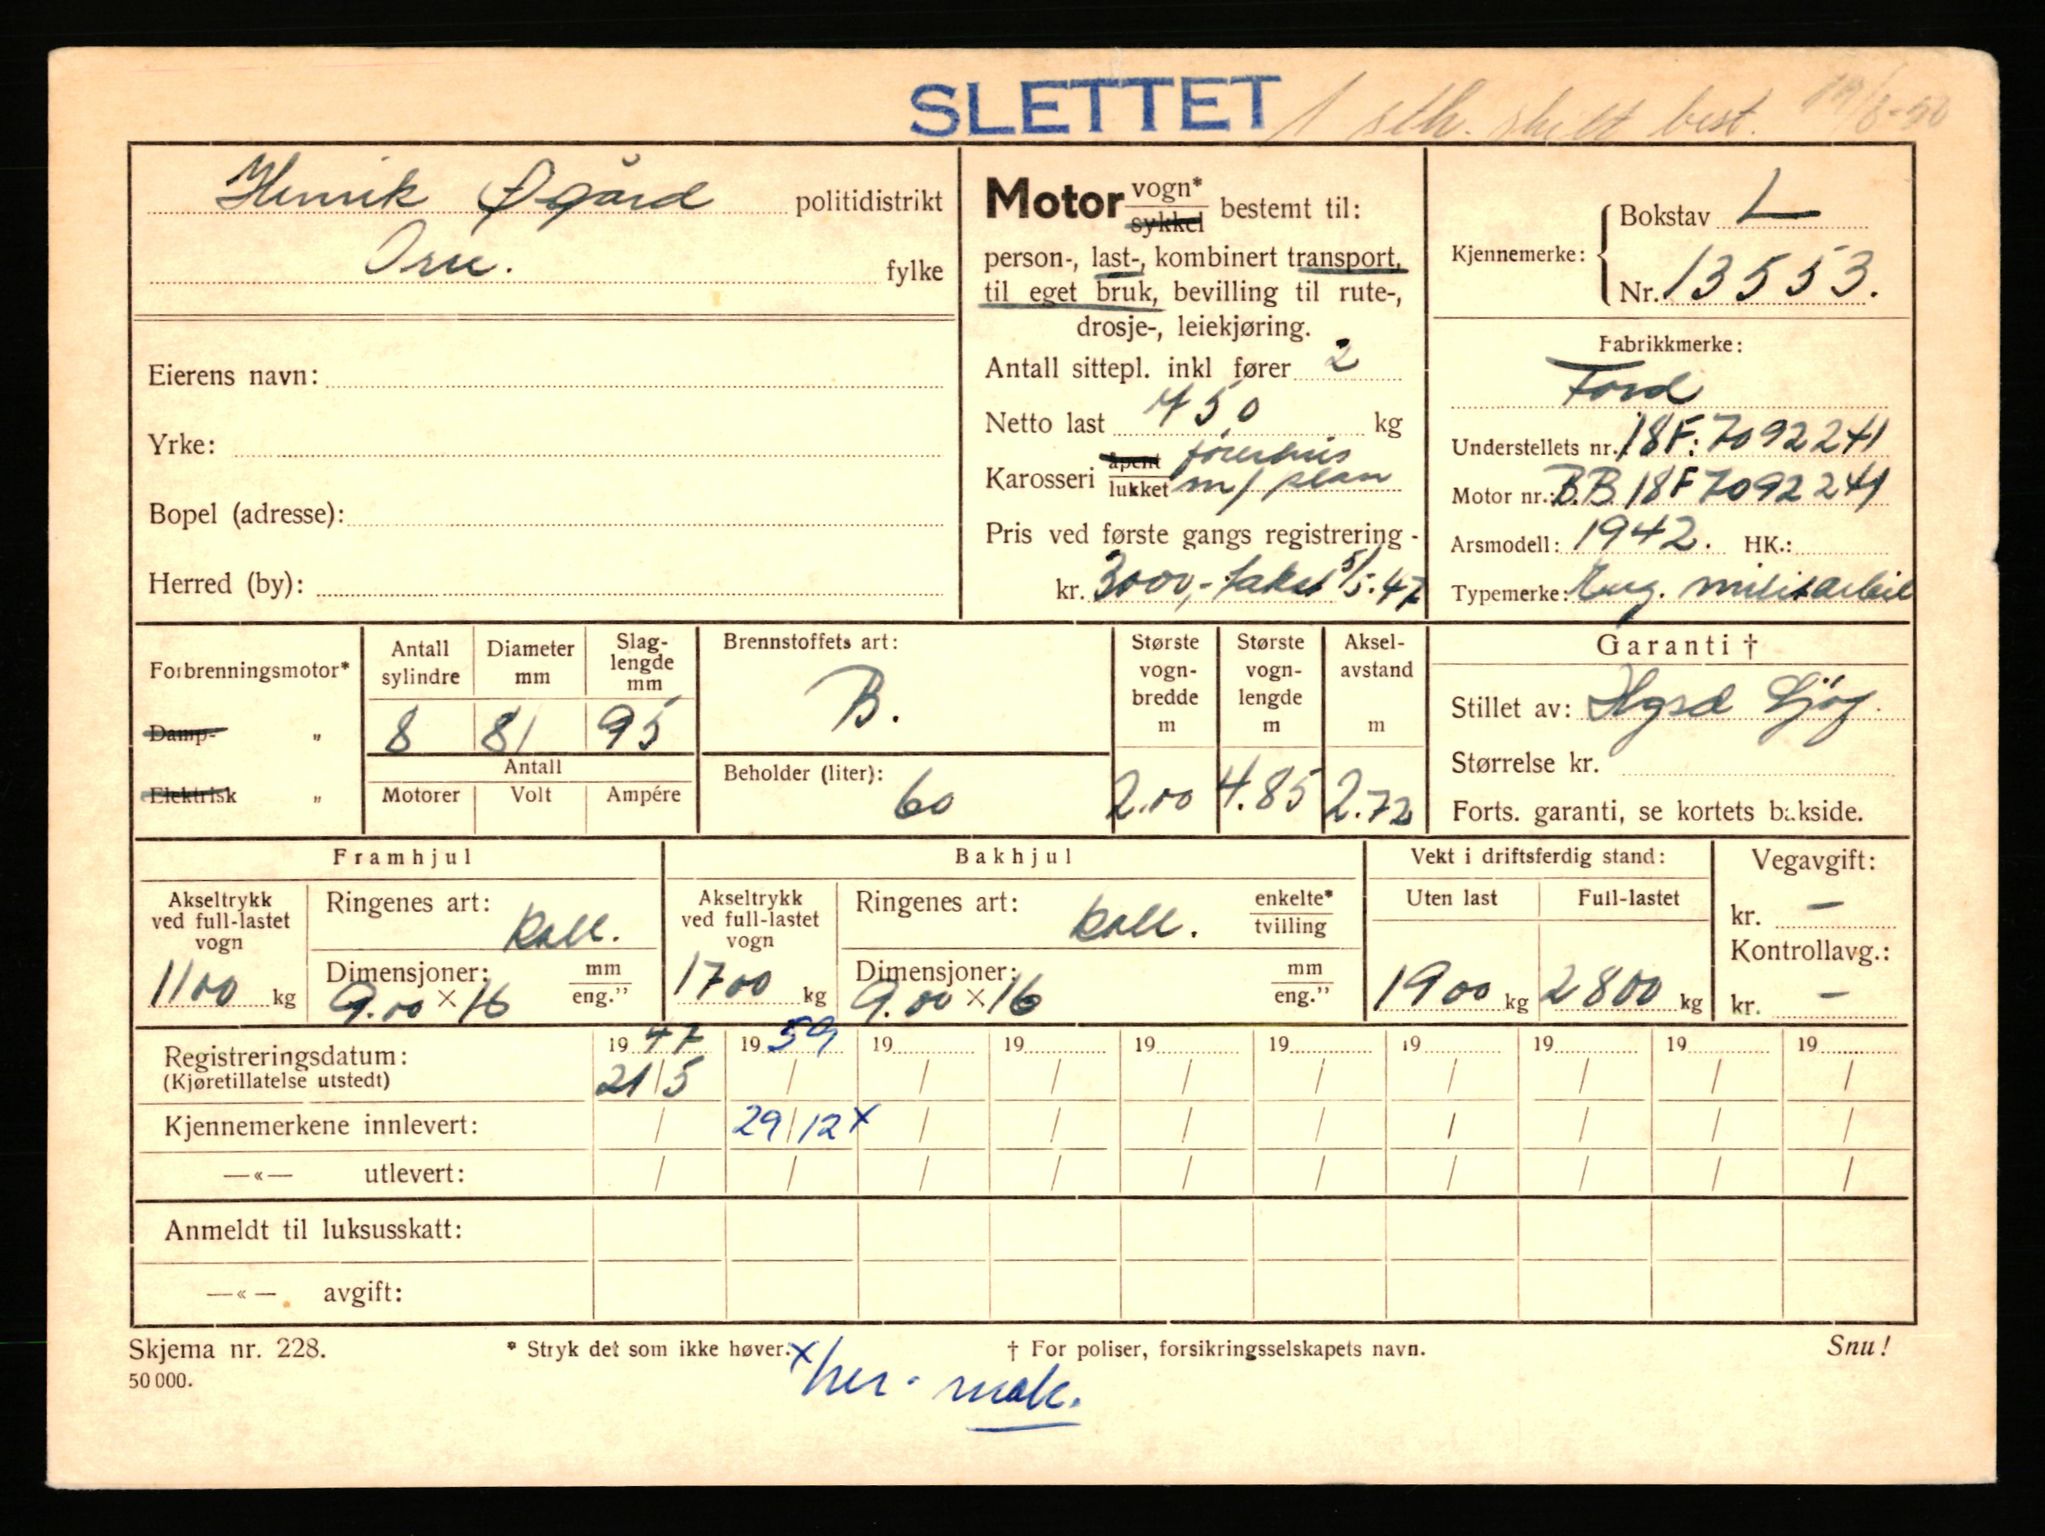 SLETTET 1 stk. skilt best. 19/8-50
Henrik Øgård politidistrikt
fylke
Eierens navn:
Yrke:
Bopel (adresse):
Herred (by):
Motor vogn* sykkel bestemt til:
person-, last-, kombinert transport,
til eget bruk, bevilling til rute-,
drosje-, leiekjøring.
Antall sittepl. inkl fører 2
Netto last 750 kg
Karosseri åpent lukket førerhus m/ plan
Pris ved første gangs registrering -
kr. 3000,- takst 5/5.47
Kjennemerke: Bokstav L
Nr. 13553.
Fabrikkmerke:
Ford
Understellets nr. 18F.7092241
Motor nr.: BB 18F7092241
Arsmodell: 1942. HK.:
Typemerke: Eng. militærbil
Forbrenningsmotor*
Damp- "
Elektrisk "
Antall sylindre
Diameter mm
Slag-lengde mm
8 81 95
Antall
Motorer Volt Ampére
Brennstoffets art:
B.
Beholder (liter):
60
Største vogn-bredde m
2.00
Største vogn-lengde m
4.85
Aksel-avstand m
2.72
Garanti †
Stillet av:
Størrelse kr.
Forts. garanti, se kortets bakside.
Framhjul
Akseltrykk ved full-lastet vogn
1100 kg
Ringenes art:
Dimensjoner: mm eng."
9.00 × 16
Bakhjul
Akseltrykk ved full-lastet vogn
1700 kg
Ringenes art: enkelte* tvilling
Dimensjoner: mm eng."
9.00 × 16
Vekt i driftsferdig stand:
Uten last Full-lastet
1900 kg 2800 kg
Vegavgift:
kr. —
Kontrollavg.:
kr. —
Registreringsdatum: 1947 1959 19 19 19 19 19 19 19 19
(Kjøretillatelse utstedt) 21/5 / / / / / / / / /
Kjennemerkene innlevert: / 29/12 x / / / / / / / /
—«— utlevert: / / / / / / / / / /
Anmeldt til luksusskatt:
—«— avgift:
Skjema nr. 228. * Stryk det som ikke høver. † For poliser, forsikringsselskapets navn. Snu!
50 000.
x her. mak.